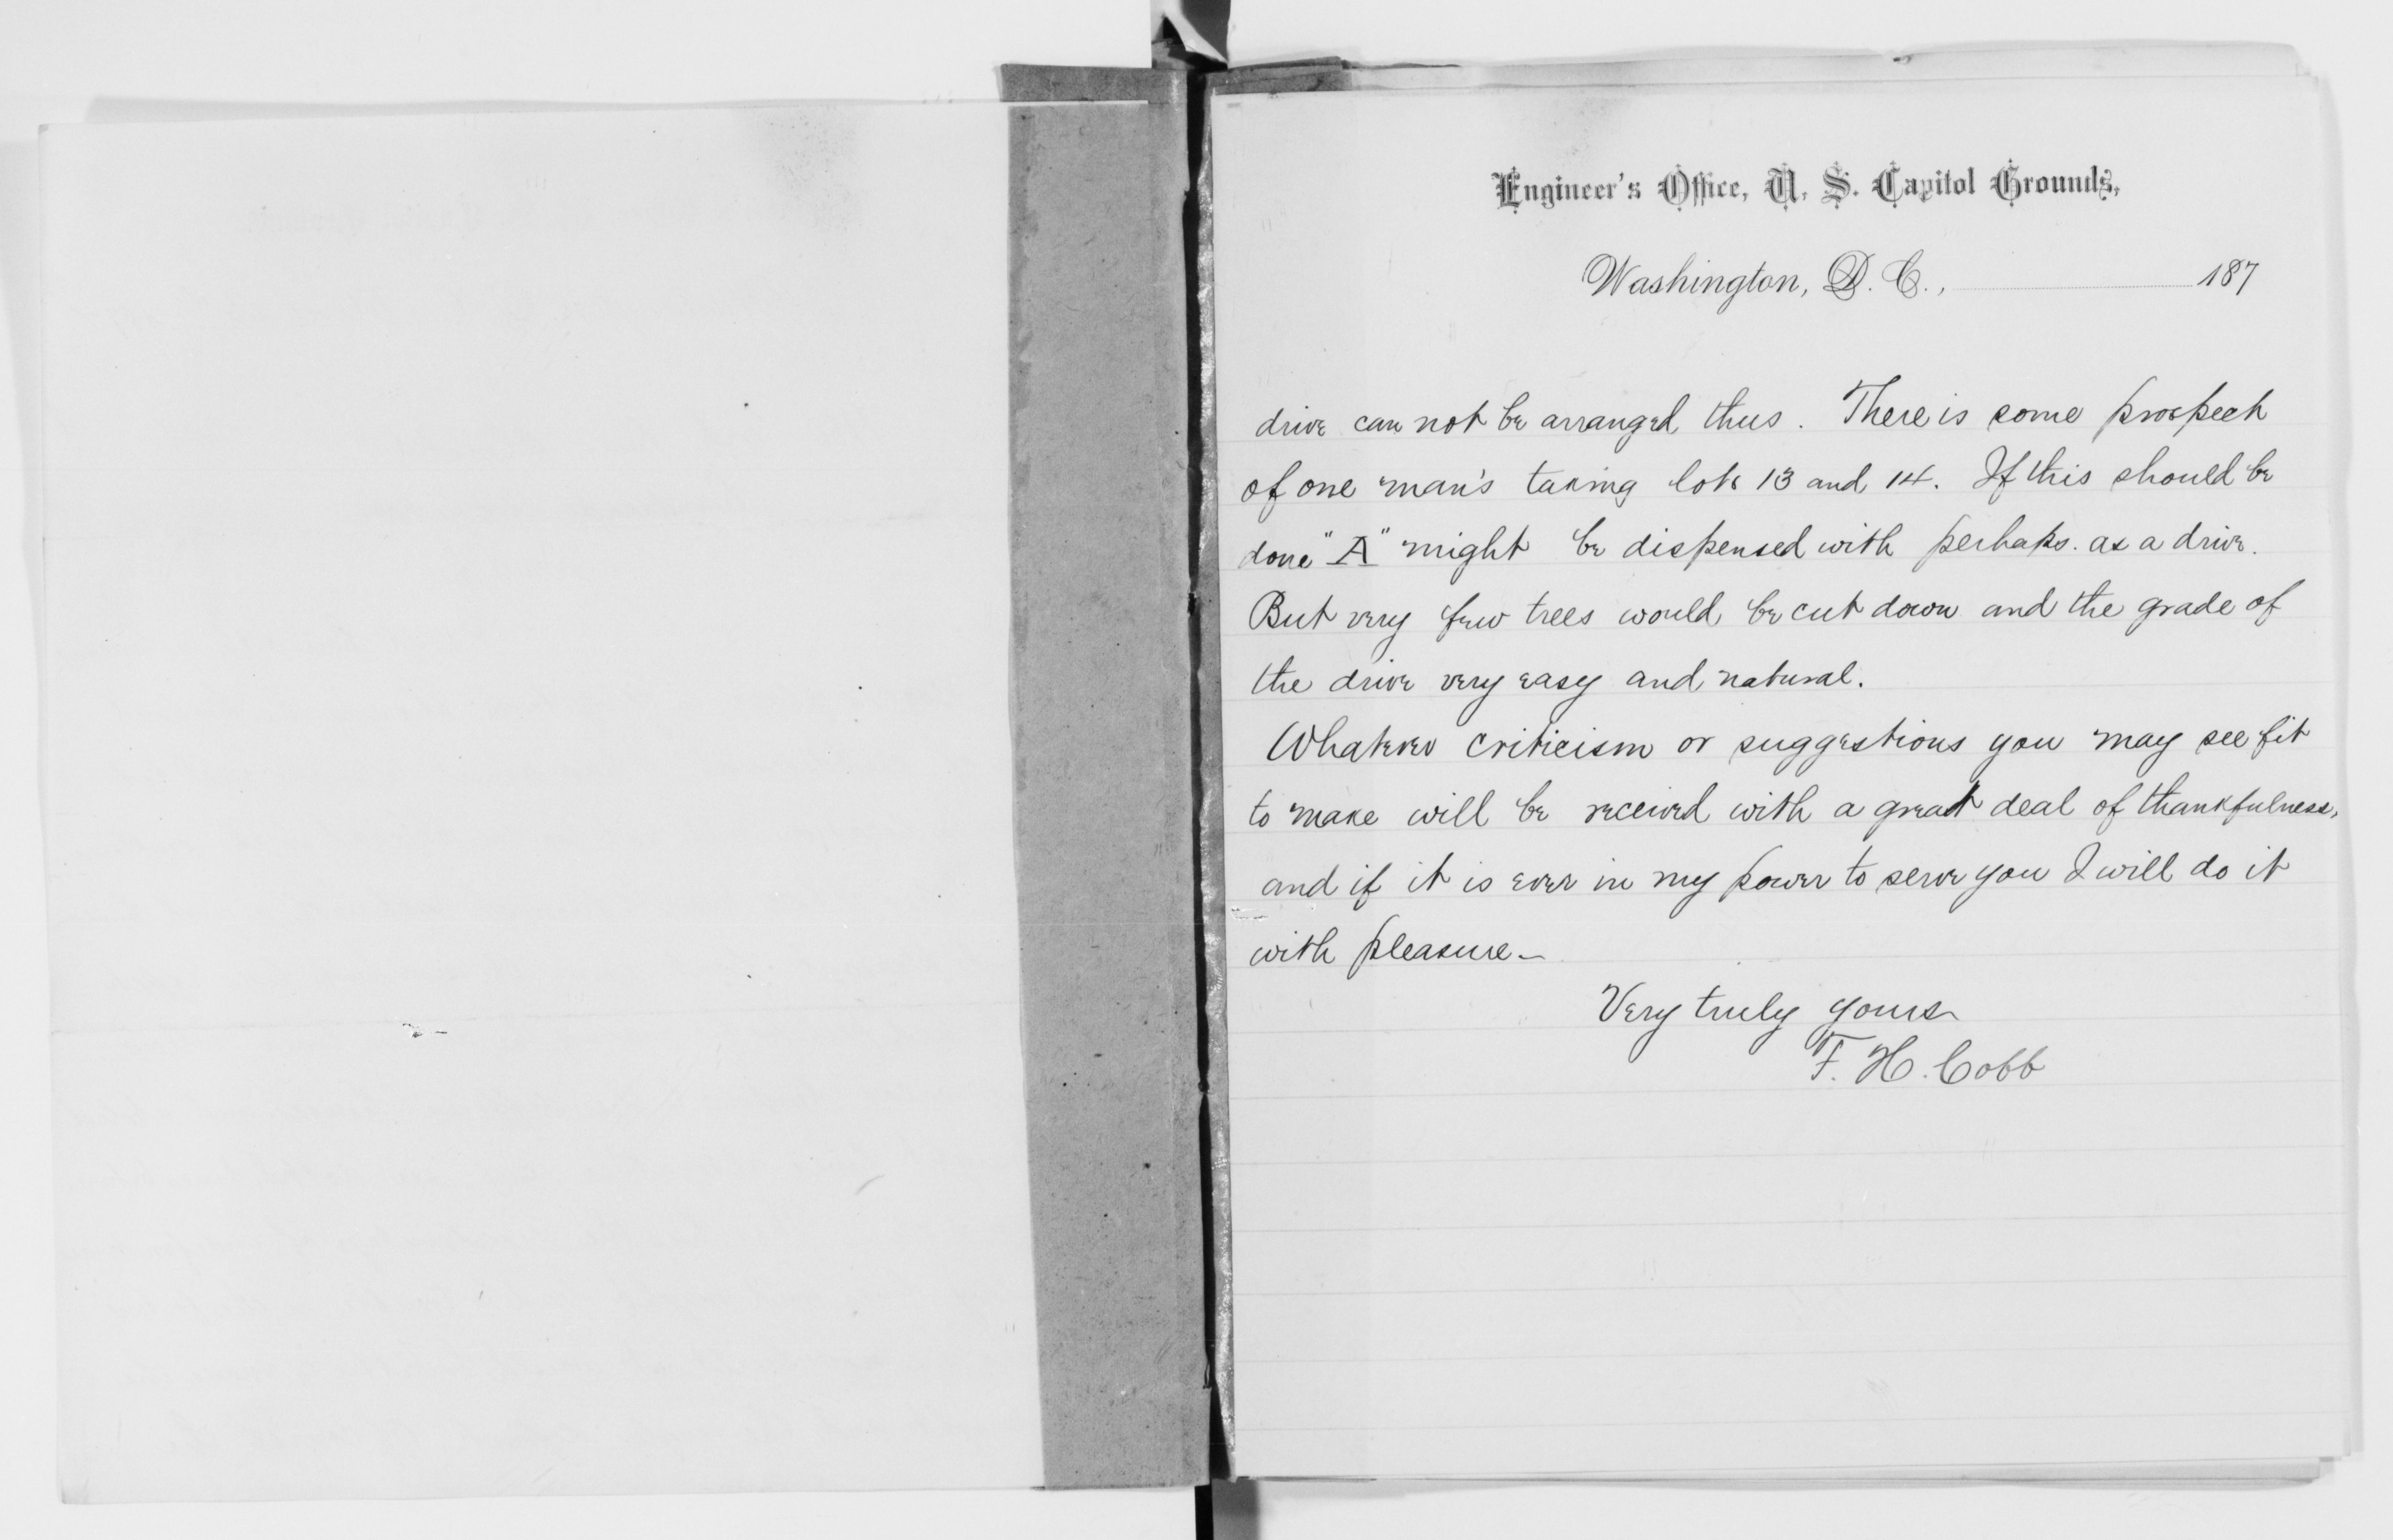 Engineer's Office, U. S. Capitol Grounds,
Washington, D. C., 187
drive can not be arranged thus. There is some prospect
of one man's taking lots 13 and 14. If this should be
done "A" might be dispensed with perhaps. as a drive.
But very few trees would be cut down and the grade of
the drive very easy and natural.
Whatever criticism or suggestions you may see fit
to make will be received with a great deal of thankfulness,
and if it is ever in my power to serve you I will do it
with pleasure—
Very truly yours
F. H. Cobb